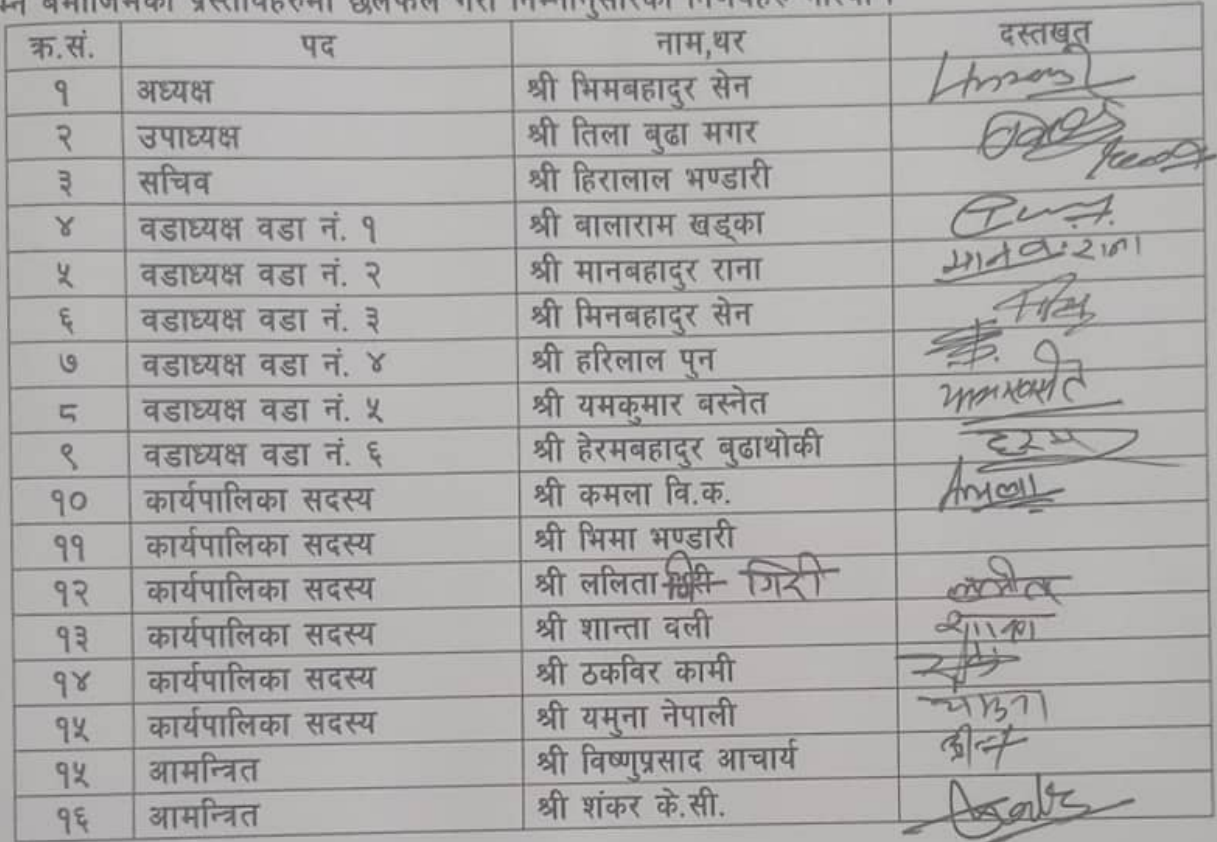 बमोजिमका प्रस्तावहरुमा छलफल गरी निम्नानुसारका निर्णयहरु गरियो।
क्र.सं. पद नाम,थर दस्तखूत
१ अध्यक्ष श्री भिमबहादुर सेन
२ उपाध्यक्ष श्री तिला बुढा मगर
३ सचिव श्री हिरालाल भण्डारी
४ वडाध्यक्ष वडा नं. १ श्री बालाराम खड्का
५ वडाध्यक्ष वडा नं. २ श्री मानबहादुर राना मान ब. राना
६ वडाध्यक्ष वडा नं. ३ श्री मिनबहादुर सेन
७ वडाध्यक्ष वडा नं. ४ श्री हरिलाल पुन
८ वडाध्यक्ष वडा नं. ५ श्री यमकुमार बस्नेत
९ वडाध्यक्ष वडा नं. ६ श्री हेरमबहादुर बुढाथोकी
१० कार्यपालिका सदस्य श्री कमला वि.क.
११ कार्यपालिका सदस्य श्री भिमा भण्डारी
१२ कार्यपालिका सदस्य श्री ललिता गिरी
१३ कार्यपालिका सदस्य श्री शान्ता वली
१४ कार्यपालिका सदस्य श्री ठकविर कामी
१५ कार्यपालिका सदस्य श्री यमुना नेपाली
१५ आमन्त्रित श्री विष्णुप्रसाद आचार्य
१६ आमन्त्रित श्री शंकर के.सी.